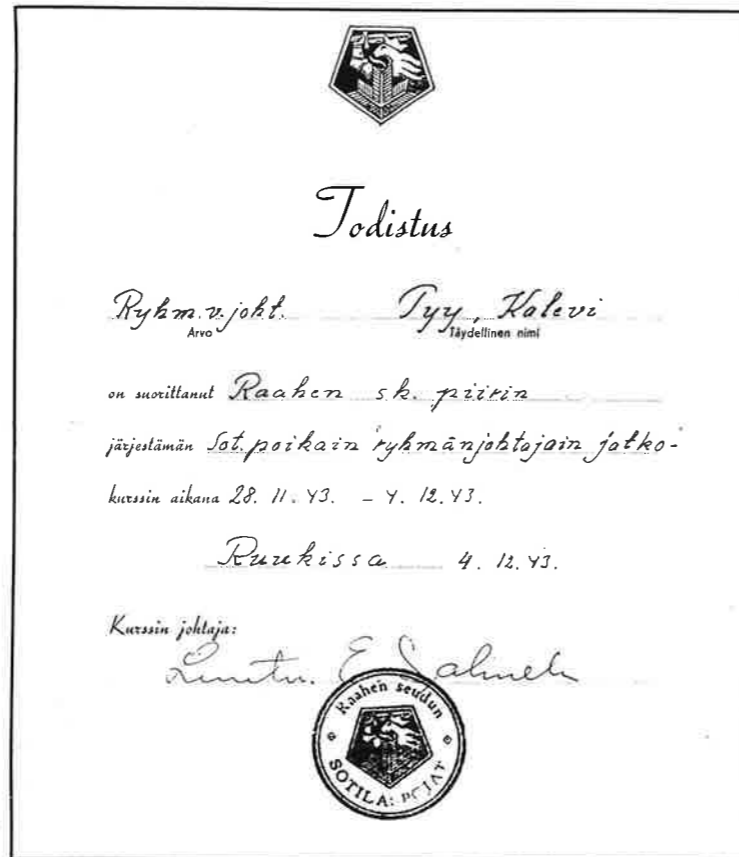 Todistus
Ryhm.v.joht. Tyy, Kalevi
Arvo Täydellinen nimi
on suorittanut Raahen sk. piirin
järjestämän Sot.poikain ryhmänjohtajain jatko-
kurssin aikana 28. 11. 43. – 4. 12. 43.
Ruukissa 4. 12. 43.
Kurssin johtaja:
E
Raahen seudun
SOTILASPOJAT